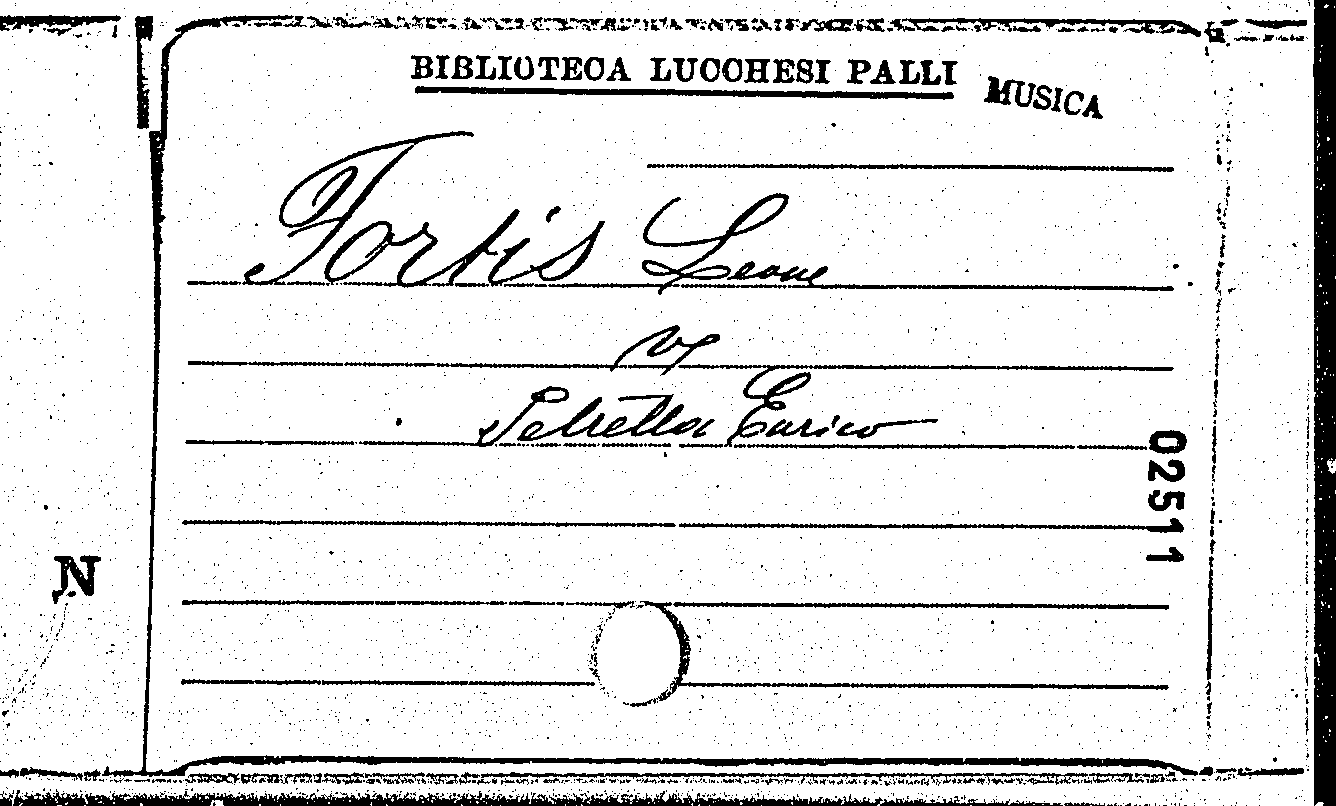 BIBLIOTECA LUCCHESI PALLI
MUSICA
Fortis Leone
v
Petrella Enrico
02511
N